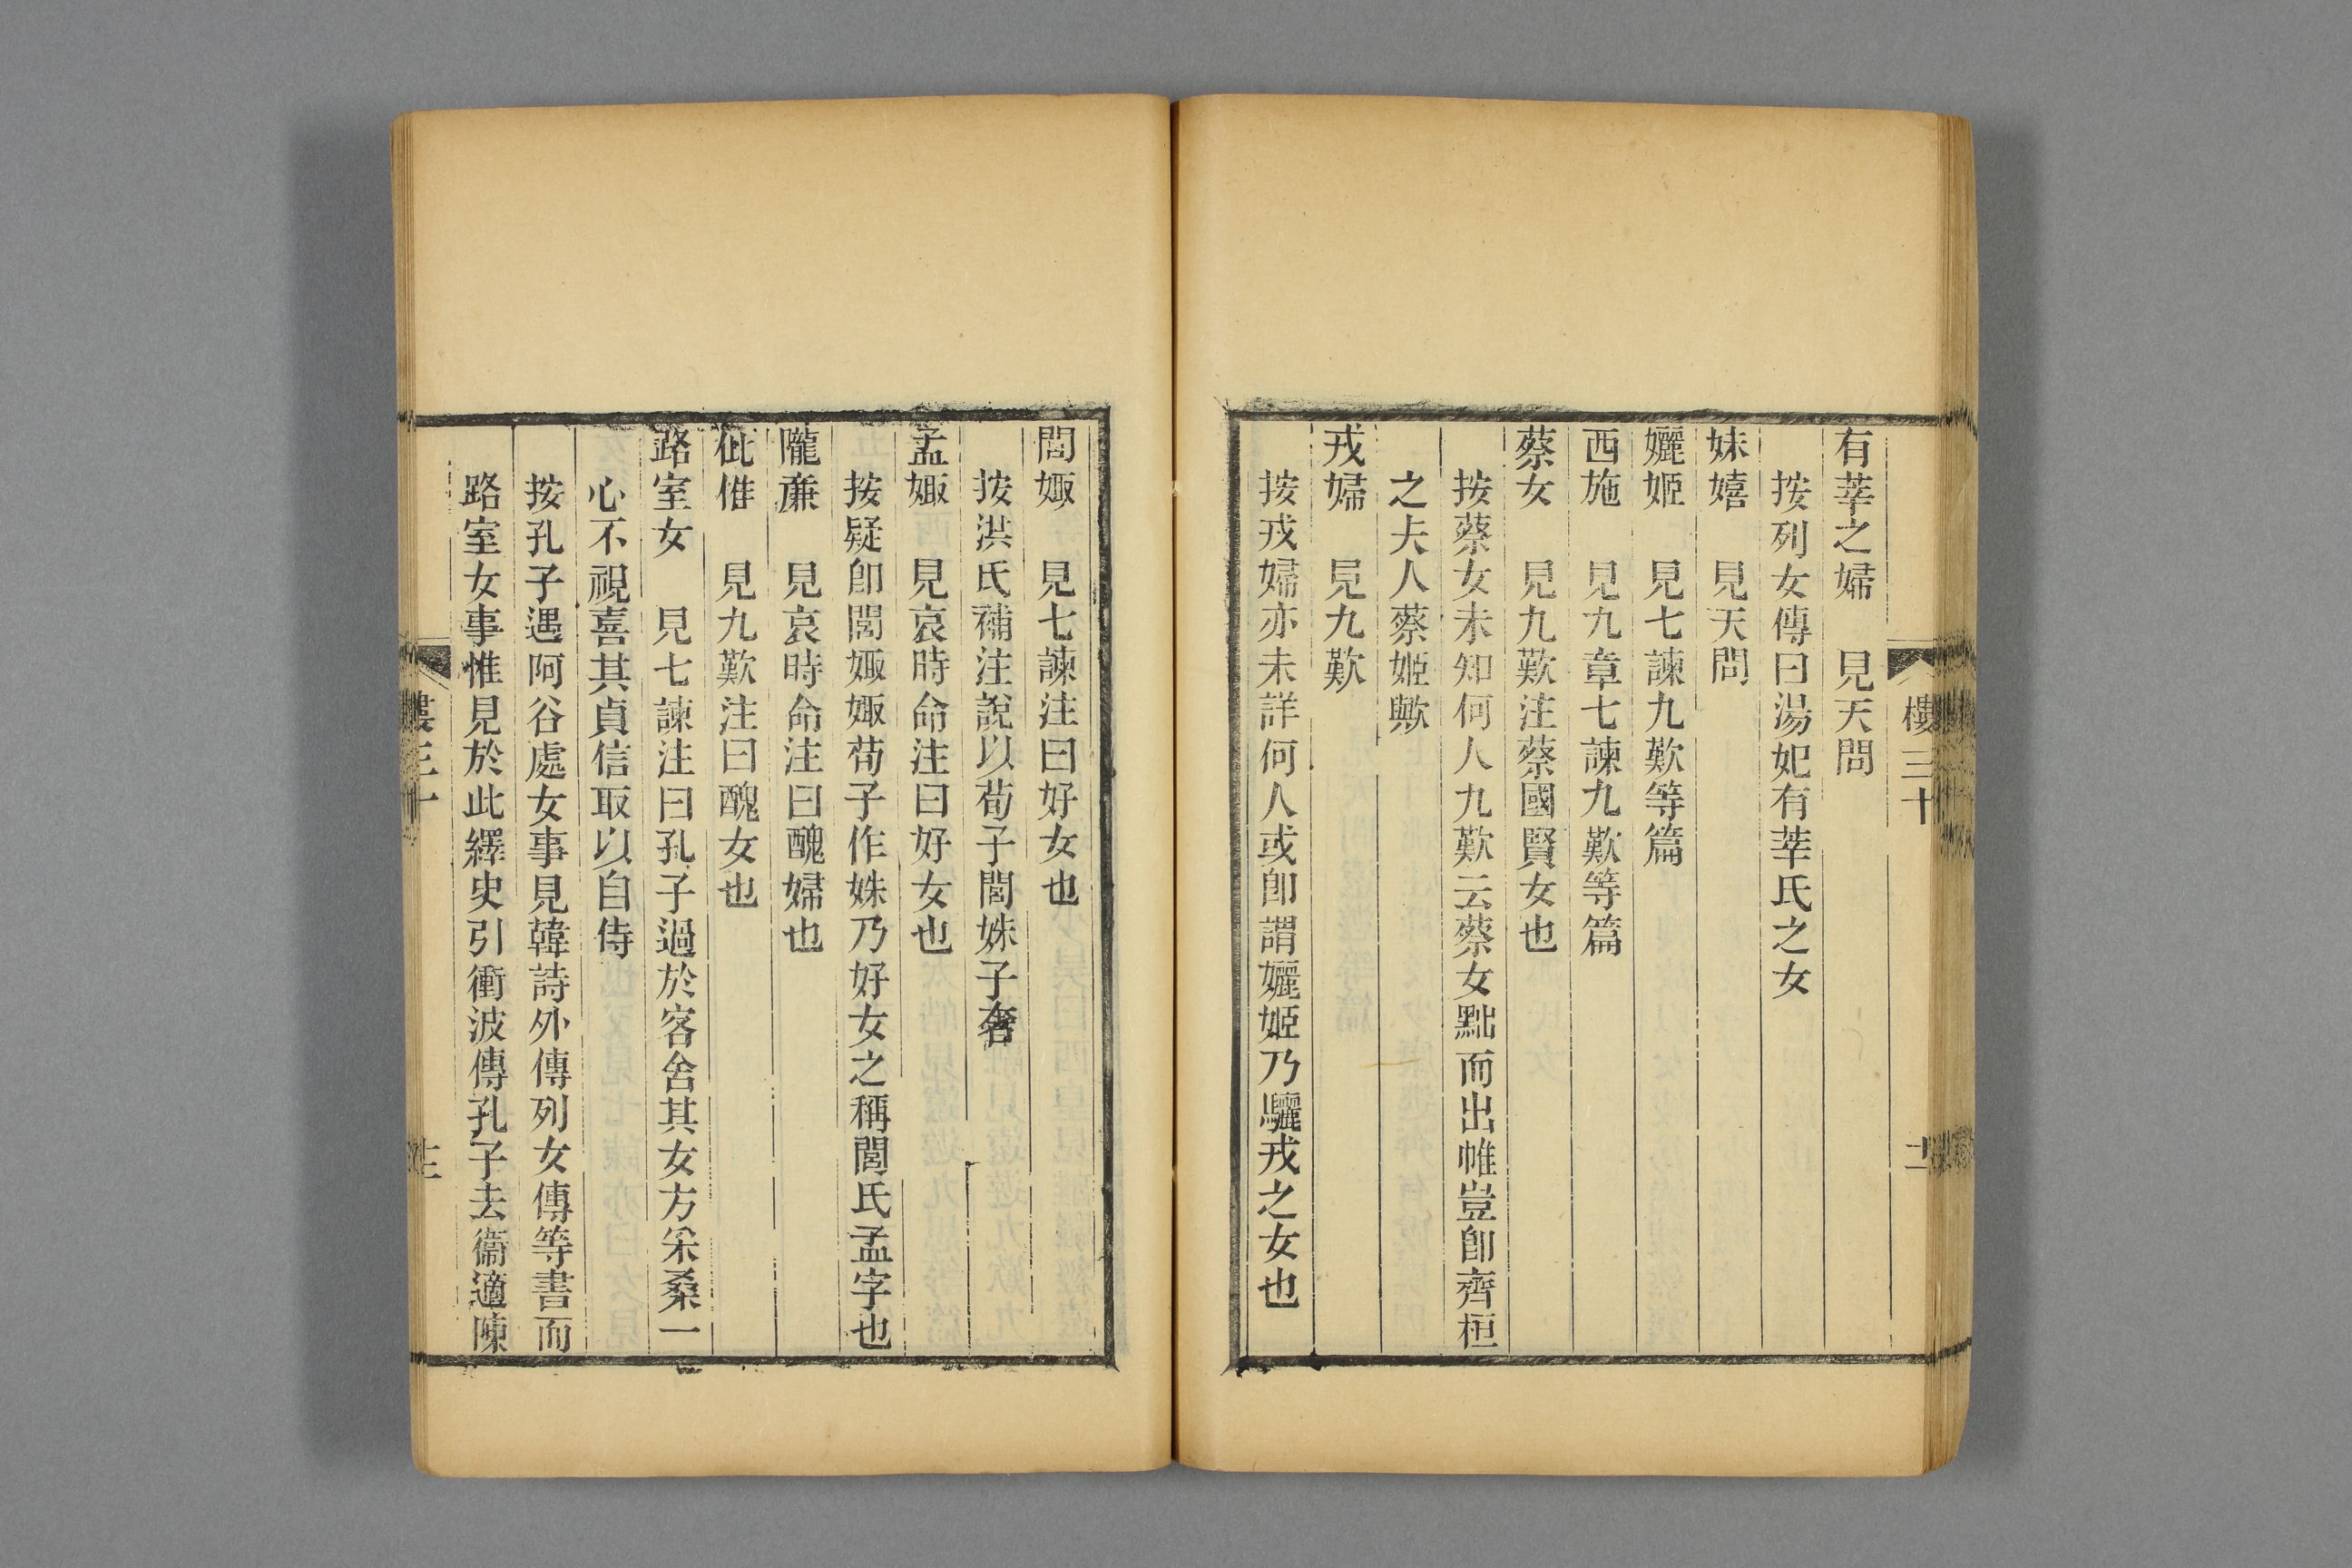 樓三十
有莘之婦　見天問
按列女傳曰湯妃有莘氏之女
妹嬉　見天問
孋姬　見七諫九歎等篇
西施　見九章七諫九歎等篇
蔡女　見九歎注蔡國賢女也
按蔡女未知何人九歎云蔡女黜而出帷豈卽齊桓
之夫人蔡姬歟
戎婦　見九歎
按戎婦亦未詳何人或卽謂孋姬乃驪戎之女也
閭娵　見七諫注曰好女也
按洪氏補注說以荀子閭姝子奢
孟娵　見哀時命注曰好女也
按疑卽閭娵娵荀子作姝乃好女之稱閭氏孟字也
隴廉　見哀時命注曰醜婦也
仳倠　見九歎注曰醜女也
路室女　見七諫注曰孔子過於客舍其女方采桑一
心不視喜其貞信取以自侍
按孔子遇阿谷處女事見韓詩外傳列女傳等書而
路室女事惟見於此繹史引衝波傳孔子去衞適陳
樓三十